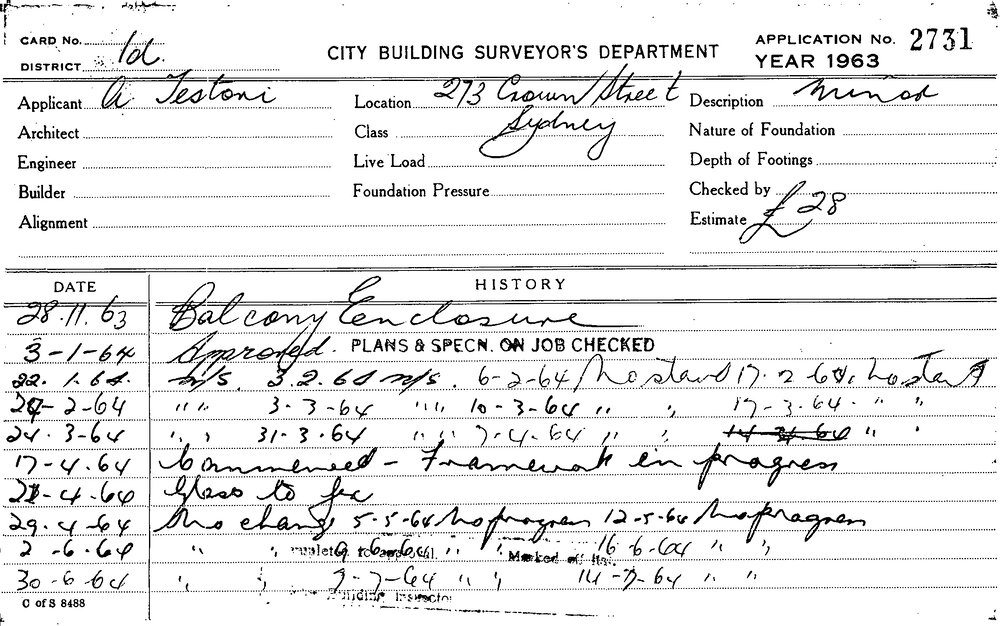 CARD No. 1d.
DISTRICT
CITY BUILDING SURVEYOR'S DEPARTMENT
APPLICATION No. 2731
YEAR 1963
Applicant A Testoni
Location 273 Crown Street
Sydney
Description Minor
Architect
Class
Nature of Foundation
Engineer
Live Load
Depth of Footings
Builder
Foundation Pressure
Checked by
Alignment
Estimate £28
DATE HISTORY
28.11.63 Balcony Enclosure
3-1-64 Approved. PLANS & SPECN. ON JOB CHECKED
22.1.64. n/s. 3.2.64 n/s. 6-2-64 No start 17.2.64, No start
2-64 " " 3-3-64 " " 10-3-64 " " 17-3.64. " "
24.3-64 " " 31-3.64 " " 7-4.64 " " " "
17-4.64 Commenced - Framework in progress
-4-64 Glass to fix
29.4-64 No change 5-5-64 No progress 12-5-64 No progress
2-6-64 " " 9-6-64 " " Marked off 16-6-64 " "
30-6-64 " " 7-7-64 " " 14-7-64 " "
Building Inspector
C of S 8488